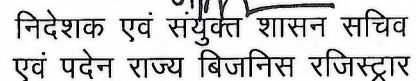 निदेशक एवं संयुक्त शासन सचिव
एवं पदेन राज्य बिजनिस रजिस्ट्रार